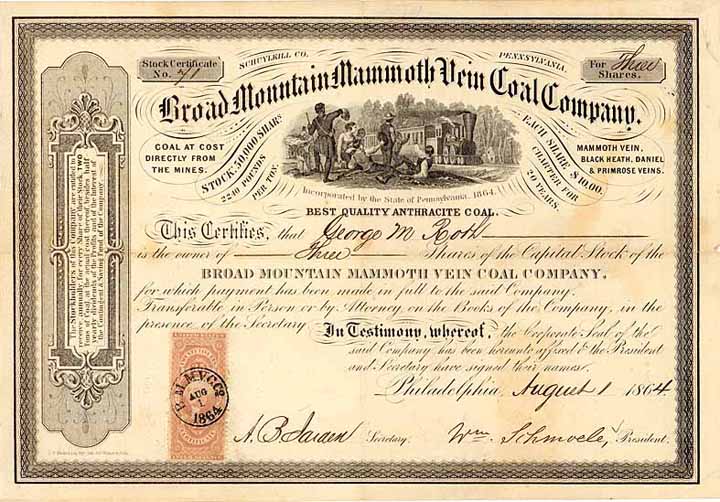 Stock Certificate
No. 71
SCHUYLKILL CO.
PENNSYLVANIA.
For Three
Shares.
Broad Mountain Mammoth Vein Coal Company.
COAL AT COST
DIRECTLY FROM
THE MINES.
STOCK, 50,000 SHARES
2240 POUNDS
PER TON.
EACH SHARE $10.00.
CHARTER FOR
20 YEARS.
MAMMOTH VEIN,
BLACK HEATH, DANIEL
& PRIMROSE VEINS.
Incorporated by the State of Pennsylvania, 1864.
BEST QUALITY ANTHRACITE COAL.
This Certifies, that George M Roth
is the owner of Three Shares of the Capital Stock of the
BROAD MOUNTAIN MAMMOTH VEIN COAL COMPANY,
for which payment has been made in full to the said Company.
Transferable in Person or by Attorney on the Books of the Company, in the
presence of the Secretary.
In Testimony, whereof, the Corporate Seal of the
said Company has been hereunto affixed & the President
and Secretary have signed their names.
Philadelphia, August 1 1864.
Secretary.
Wm. Schmoele, President.
The Stockholders of this Company are entitled to
receive annually, for every Share of their Stock, TWO
tons of Coal, at the actual cost thereof, besides half
yearly dividends of the Profits and of the Interest of
the Contingent & Saving Fund of the Company.
B.M.M.V.C.Co
AUG
1
1864